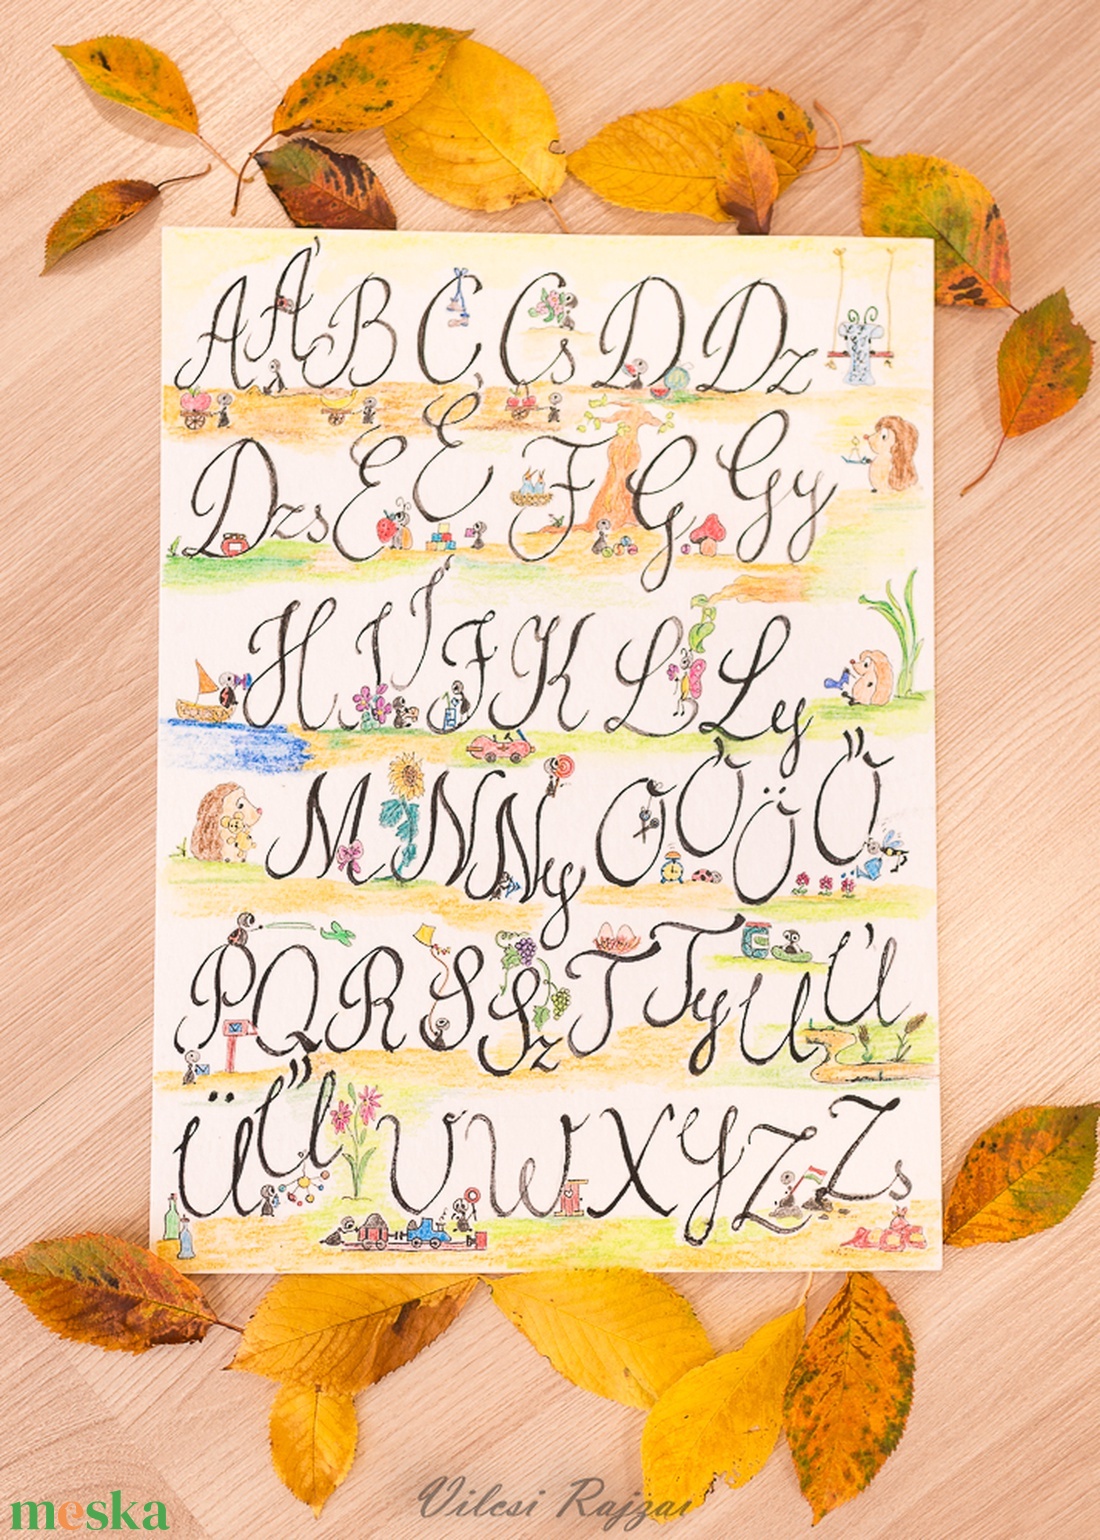 A Á B C Cs D Dz
Dzs E É F G Gy
H I Í J K L Ly
M N Ny O Ó Ö Ő
P Q R S Sz T Ty U Ú
Ü Ű V W X Y Z Zs
Vilcsi Rajzai
meska